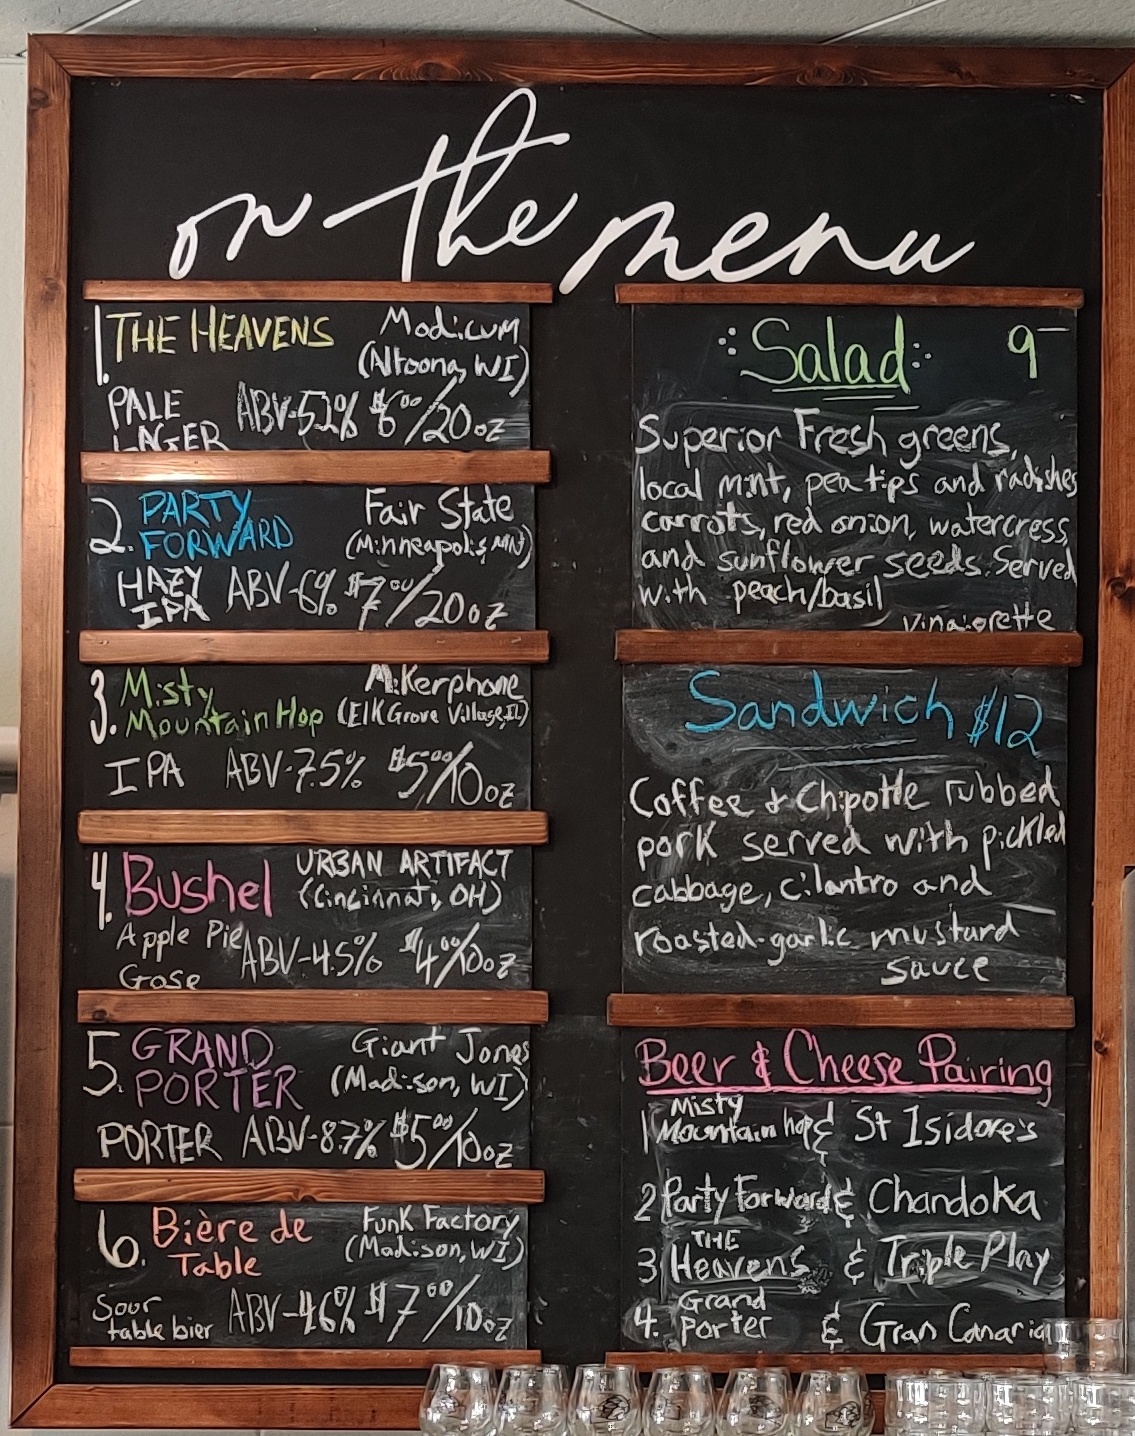 on the menu
1. THE HEAVENS Modicum
(Altoona, WI)
PALE LAGER ABV-5.2% $6.00/20oz
2. PARTY FORWARD Fair State
(Minneapolis, MN)
HAZY IPA ABV-6% $7.00/20oz
3. Misty Mountain Hop Mikerphone
(Elk Grove Village, IL)
IPA ABV-7.5% $5.00/10oz
4. Bushel URBAN ARTIFACT
(Cincinnati, OH)
Apple Pie Gose ABV-4.5% $4.00/10oz
5. GRAND PORTER Giant Jones
(Madison, WI)
PORTER ABV-8.7% $5.00/10oz
6. Bière de Table Funk Factory
(Madison, WI)
Sour table bier ABV-4.6% $7.00/10oz
Salad 9-
Superior Fresh greens,
local mint, pea tips and radishes
carrots, red onion, watercress
and sunflower seeds. Served
with peach/basil
vinaigrette
Sandwich $12
Coffee & Chipotle rubbed
pork served with pickled
cabbage, cilantro and
roasted-garlic mustard
sauce
Beer & Cheese Pairing
1 Misty Mountain hop & St Isidore's
2 Party Forward & Chandoka
3 THE Heavens & Triple Play
4. Grand Porter & Gran Canaria